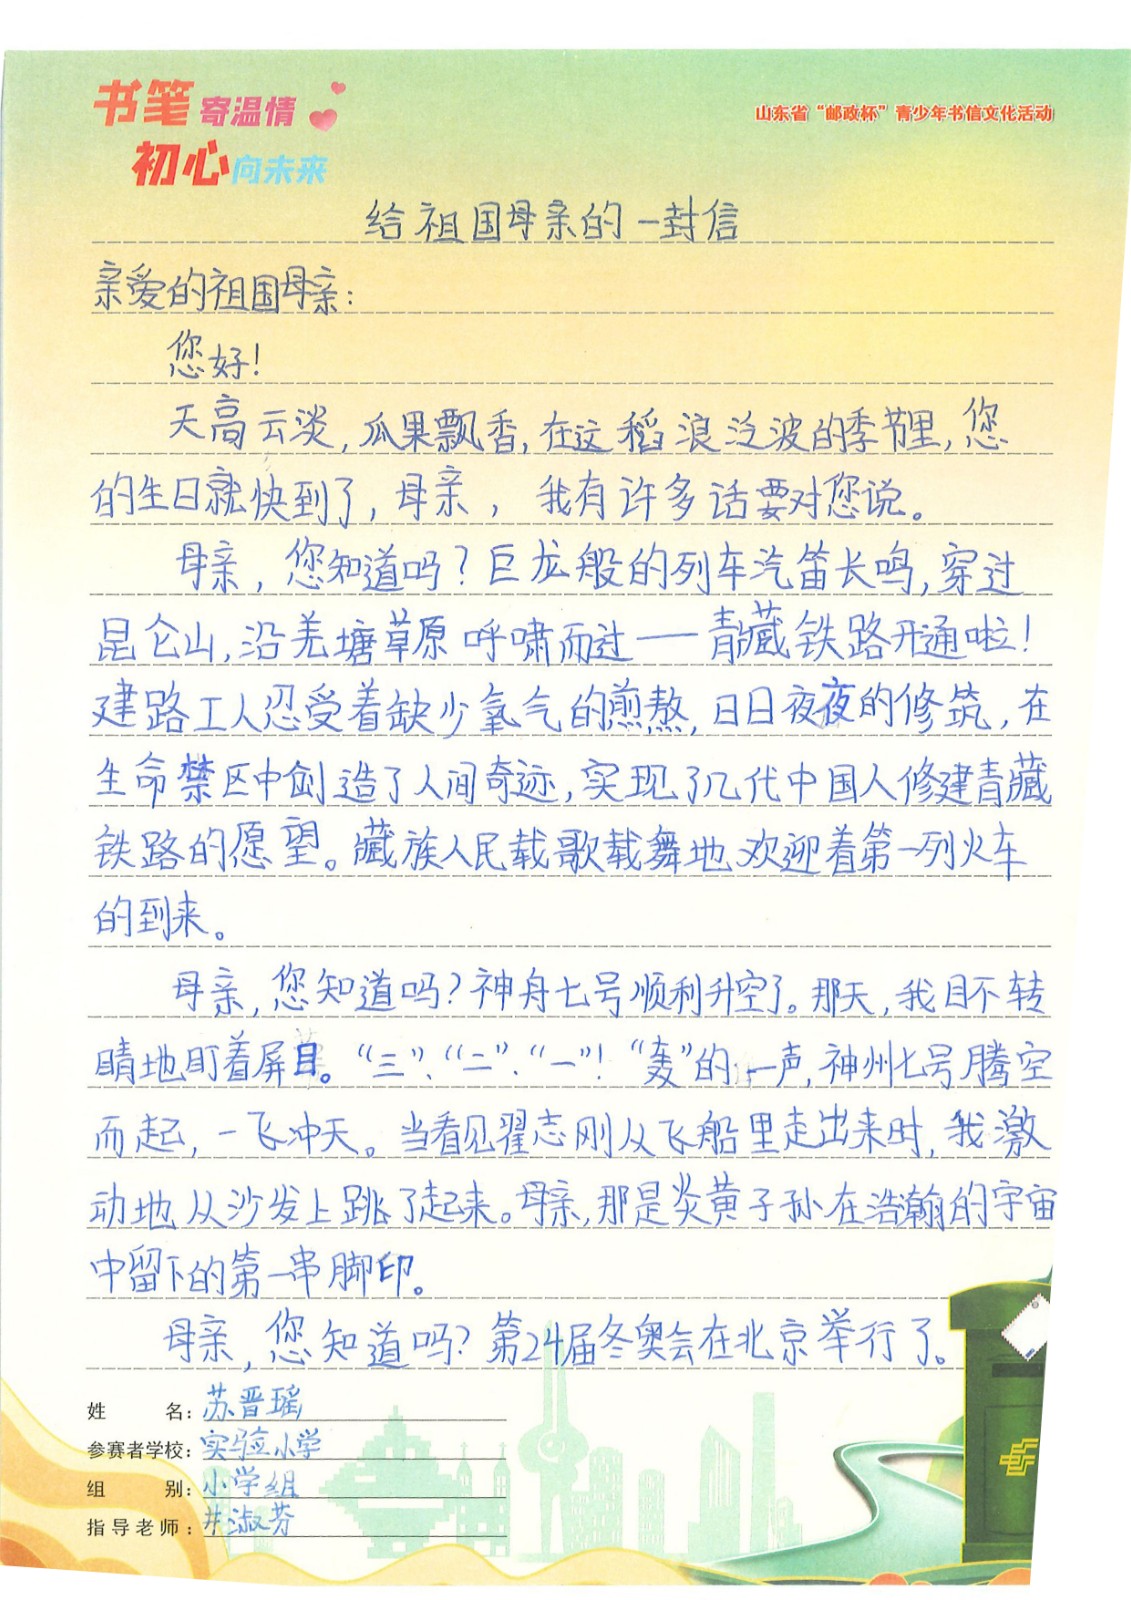 书笔寄温情
初心向未来
山东省“邮政杯”青少年书信文化活动
给祖国母亲的一封信
亲爱的祖国母亲：
您好！
天高云淡，瓜果飘香，在这稻浪泛波的季节里，您
的生日就快到了，母亲，我有许多话要对您说。
母亲，您知道吗？巨龙般的列车汽笛长鸣，穿过
昆仑山，沿羌塘草原呼啸而过——青藏铁路开通啦！
建路工人忍受着缺少氧气的煎熬，日日夜夜的修筑，在
生命禁区中创造了人间奇迹，实现了几代中国人修建青藏
铁路的愿望。藏族人民载歌载舞地欢迎着第一列火车
的到来。
母亲，您知道吗？神舟七号顺利升空了。那天，我目不转
睛地盯着屏目。“三”、“二”、“一”！“轰”的一声，神州七号腾空
而起，一飞冲天。当看见翟志刚从飞船里走出来时，我激
动地从沙发上跳了起来。母亲，那是炎黄子孙在浩瀚的宇宙
中留下的第一串脚印。
母亲，您知道吗？第24届冬奥会在北京举行了。
姓名：苏晋瑶
参赛者学校：实验小学
组别：小学组
指导老师：井淑芬